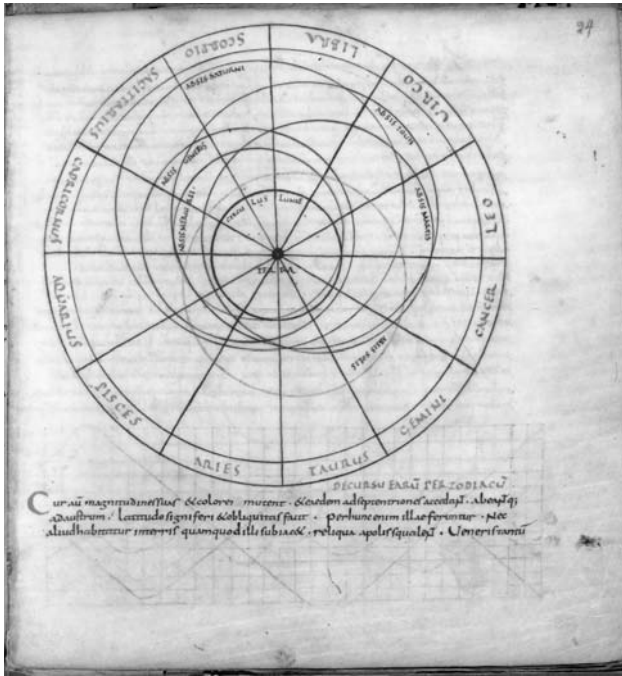 24
LIBRA
VIRGO
LEO
CANCER
GEMINI
TAURUS
ARIES
PISCES
AQUARIUS
CAPRICORNUS
SAGITTARIUS
SCORPIO
ABSIS SATURNI
ABSIS IOVIS
ABSIS MARTIS
ABSIS SOLIS
ABSIS VENERIS
ABSIS MERCURII
CIRCULUS LUNAE
TERRA
DE CURSU EARŪ PER ZODIACŪ
Cur aū magnitudines suas & colores mutent · & eaedem ad septentriones accedaṅt · abeaṅt q;
ad austrum · Latitudo signiferi & obliquitas facit · Per hunc enim illae feruntur · Nec
aliud habitatur in terris quam quod illi subiac& · reliqua a polis squaleṅt · Veneris tantū